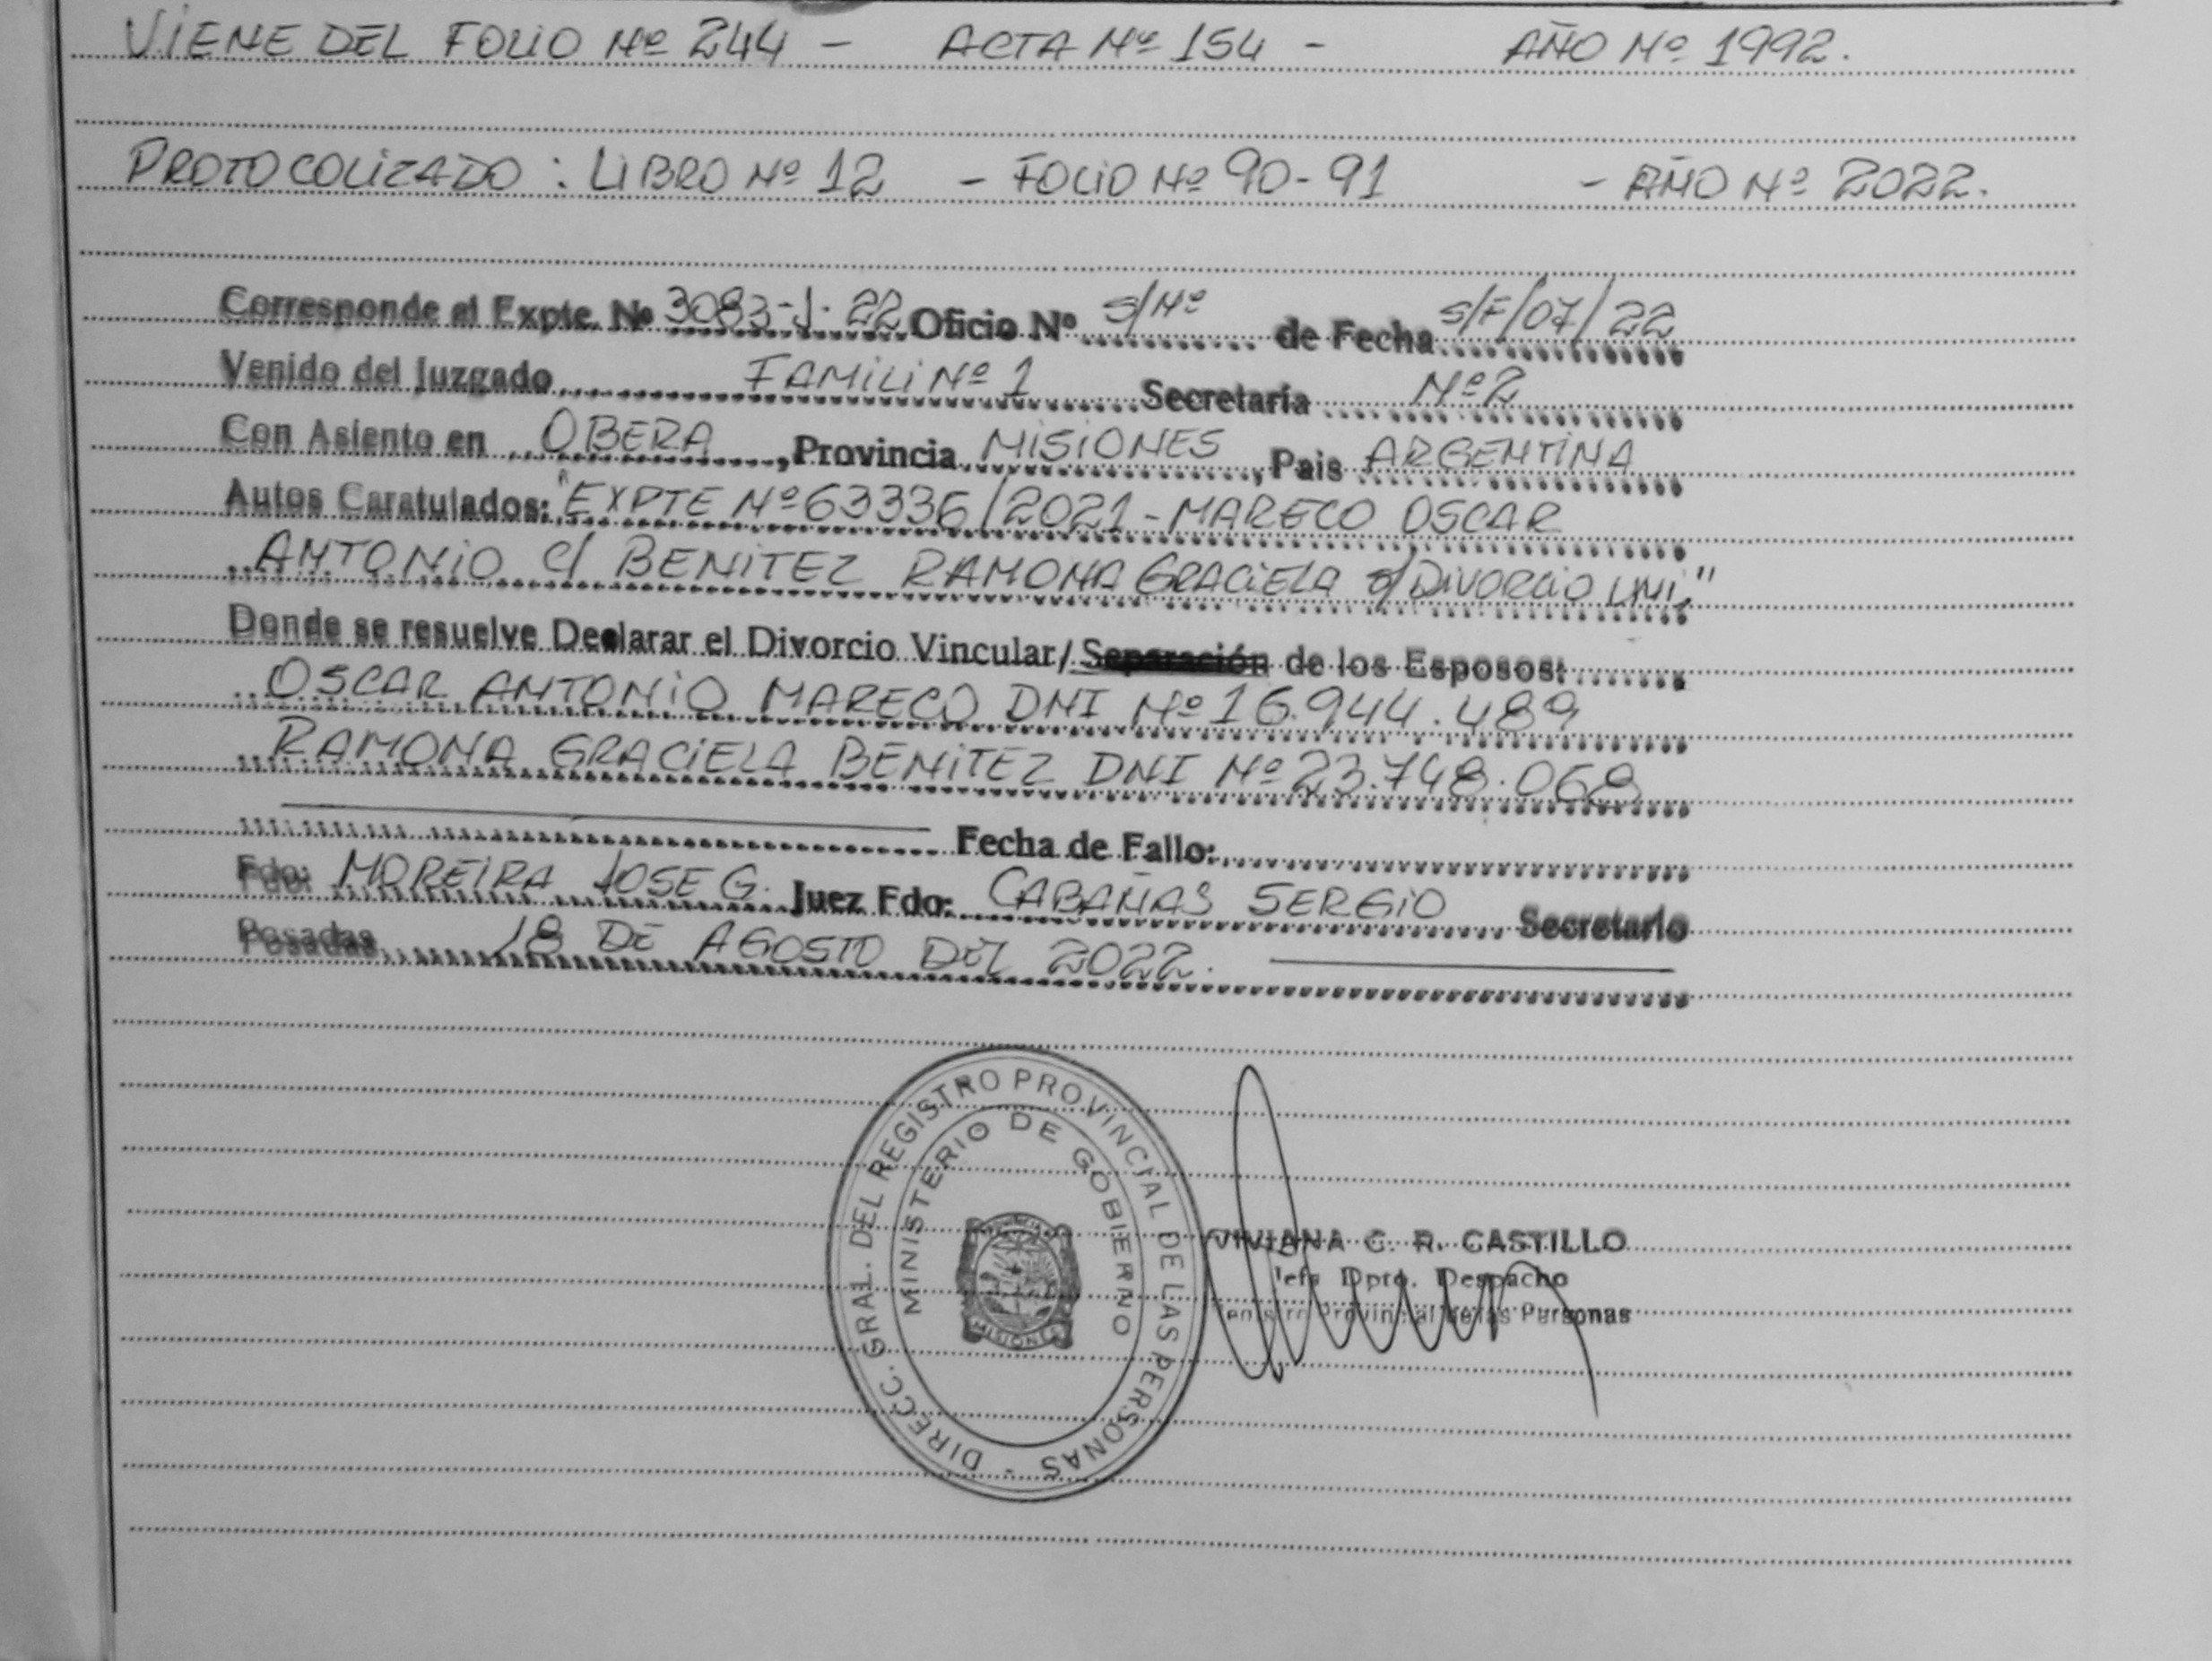 VIENE DEL FOLIO Nº 244 - ACTA Nº 154 - AÑO Nº 1992.
PROTOCOLIZADO: LIBRO Nº 12 - FOLIO Nº 90-91 - AÑO Nº 2022.
Corresponde al Expte. Nº 3083-J-22 Oficio Nº S/Nº de Fecha S/F/07/22
Venido del Juzgado FAMILI Nº 1 Secretaría Nº 2
Con Asiento en OBERA, Provincia MISIONES, Pais ARGENTINA
Autos Caratulados: "EXPTE Nº 63336/2021 - MARECO OSCAR
ANTONIO C/ BENITEZ RAMONA GRACIELA S/ DIVORCIO UNI."
Donde se resuelve Declarar el Divorcio Vincular/ Separación de los Esposos:
OSCAR ANTONIO MARECO DNI Nº 16.944.489
RAMONA GRACIELA BENITEZ DNI Nº 23.748.068
Fecha de Fallo:
Fdo: MOREIRA JOSE G. Juez Fdo: CABAÑAS SERGIO Secretario
Posadas, 18 DE AGOSTO DEL 2022.
DIRECC. GRAL. DEL REGISTRO PROVINCIAL DE LAS PERSONAS -
MINISTERIO DE GOBIERNO
MISIONES
VIVIANA C. R. CASTILLO
Jefa Dpto. Despacho
Registro Provincial de las Personas